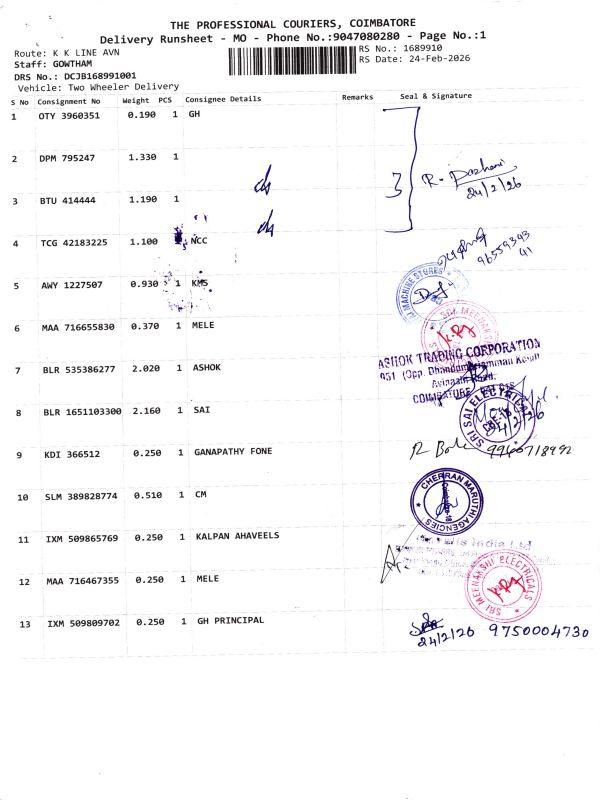 THE PROFESSIONAL COURIERS, COIMBATORE
Delivery Runsheet - MO - Phone No.:9047080280 - Page No.:1
Route: K K LINE AVN
RS No.: 1689910
Staff: GOWTHAM
RS Date: 24-Feb-2026
DRS No.: DCJB168991001
Vehicle: Two Wheeler Delivery
S No Consignment No Weight PCS Consignee Details Remarks Seal & Signature
1 OTY 3960351 0.190 1 GH
2 DPM 795247 1.330 1
3 BTU 414444 1.190 1
3 R. 24/2/26
4 TCG 42183225 1.100 NCC
96559343
41
5 AWY 1227507 0.930 1 KMS
MACHINE STORES
6 MAA 716655830 0.370 1 MELE
SRI MEENAKSHI
7 BLR 535386277 2.020 1 ASHOK
ASHOK TRADING CORPORATION
951 (Opp. Dhandumariamman Koil)
Avinashi Road,
COIMBATORE
8 BLR 1651103300 2.160 1 SAI
SRI SAI ELECTRICAL
CBE-18
9 KDI 366512 0.250 1 GANAPATHY FONE
9960718992
10 SLM 389828774 0.510 1 CM
CHERRAN MARUTHI AGENCIES
11 IXM 509865769 0.250 1 KALPAN AHAVEELS
India Ltd
12 MAA 716467355 0.250 1 MELE
SRI MEENAKSHI ELECTRICALS
13 IXM 509809702 0.250 1 GH PRINCIPAL
24/2/26 9750004730